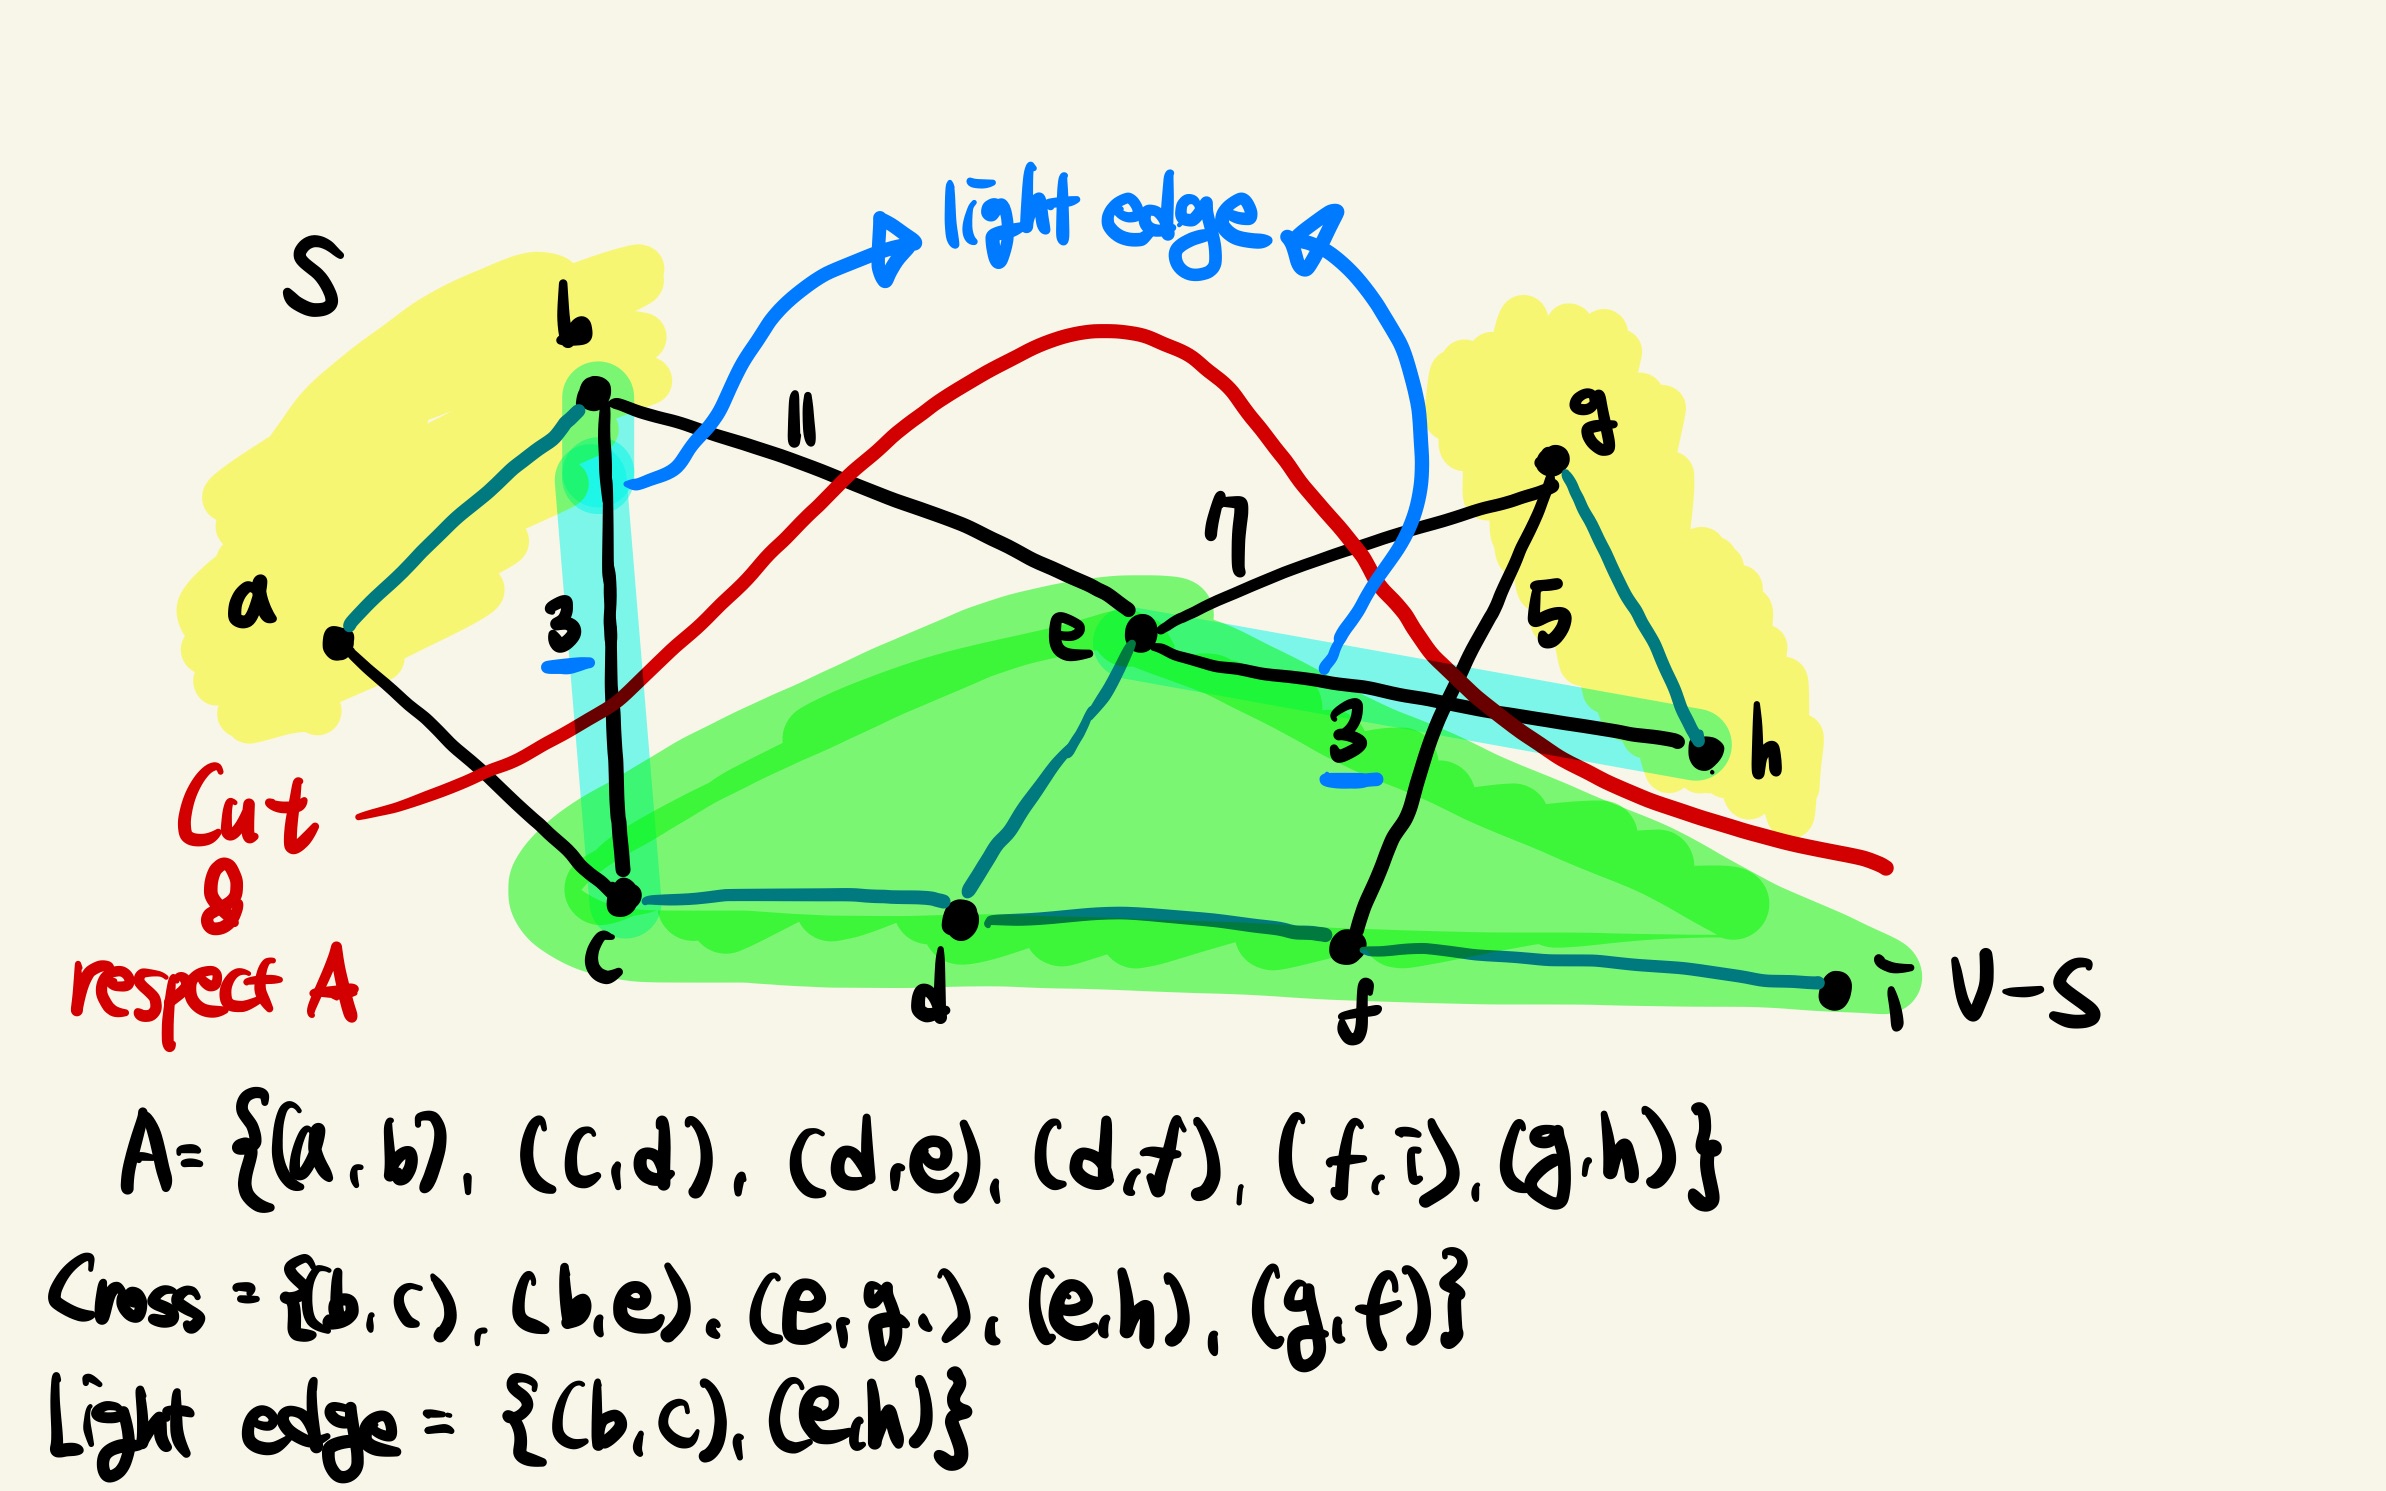 light edge
S
b
11
g
7
a
3
e
5
3
h
Cut
&
respect A
c
d
f
i
V-S
A={(a,b), (c,d), (d,e), (d,f), (f,i), (g,h)}
Cross={(b,c), (b,e), (e,g), (e,h), (g,f)}
Light edge={(b,c), (e,h)}